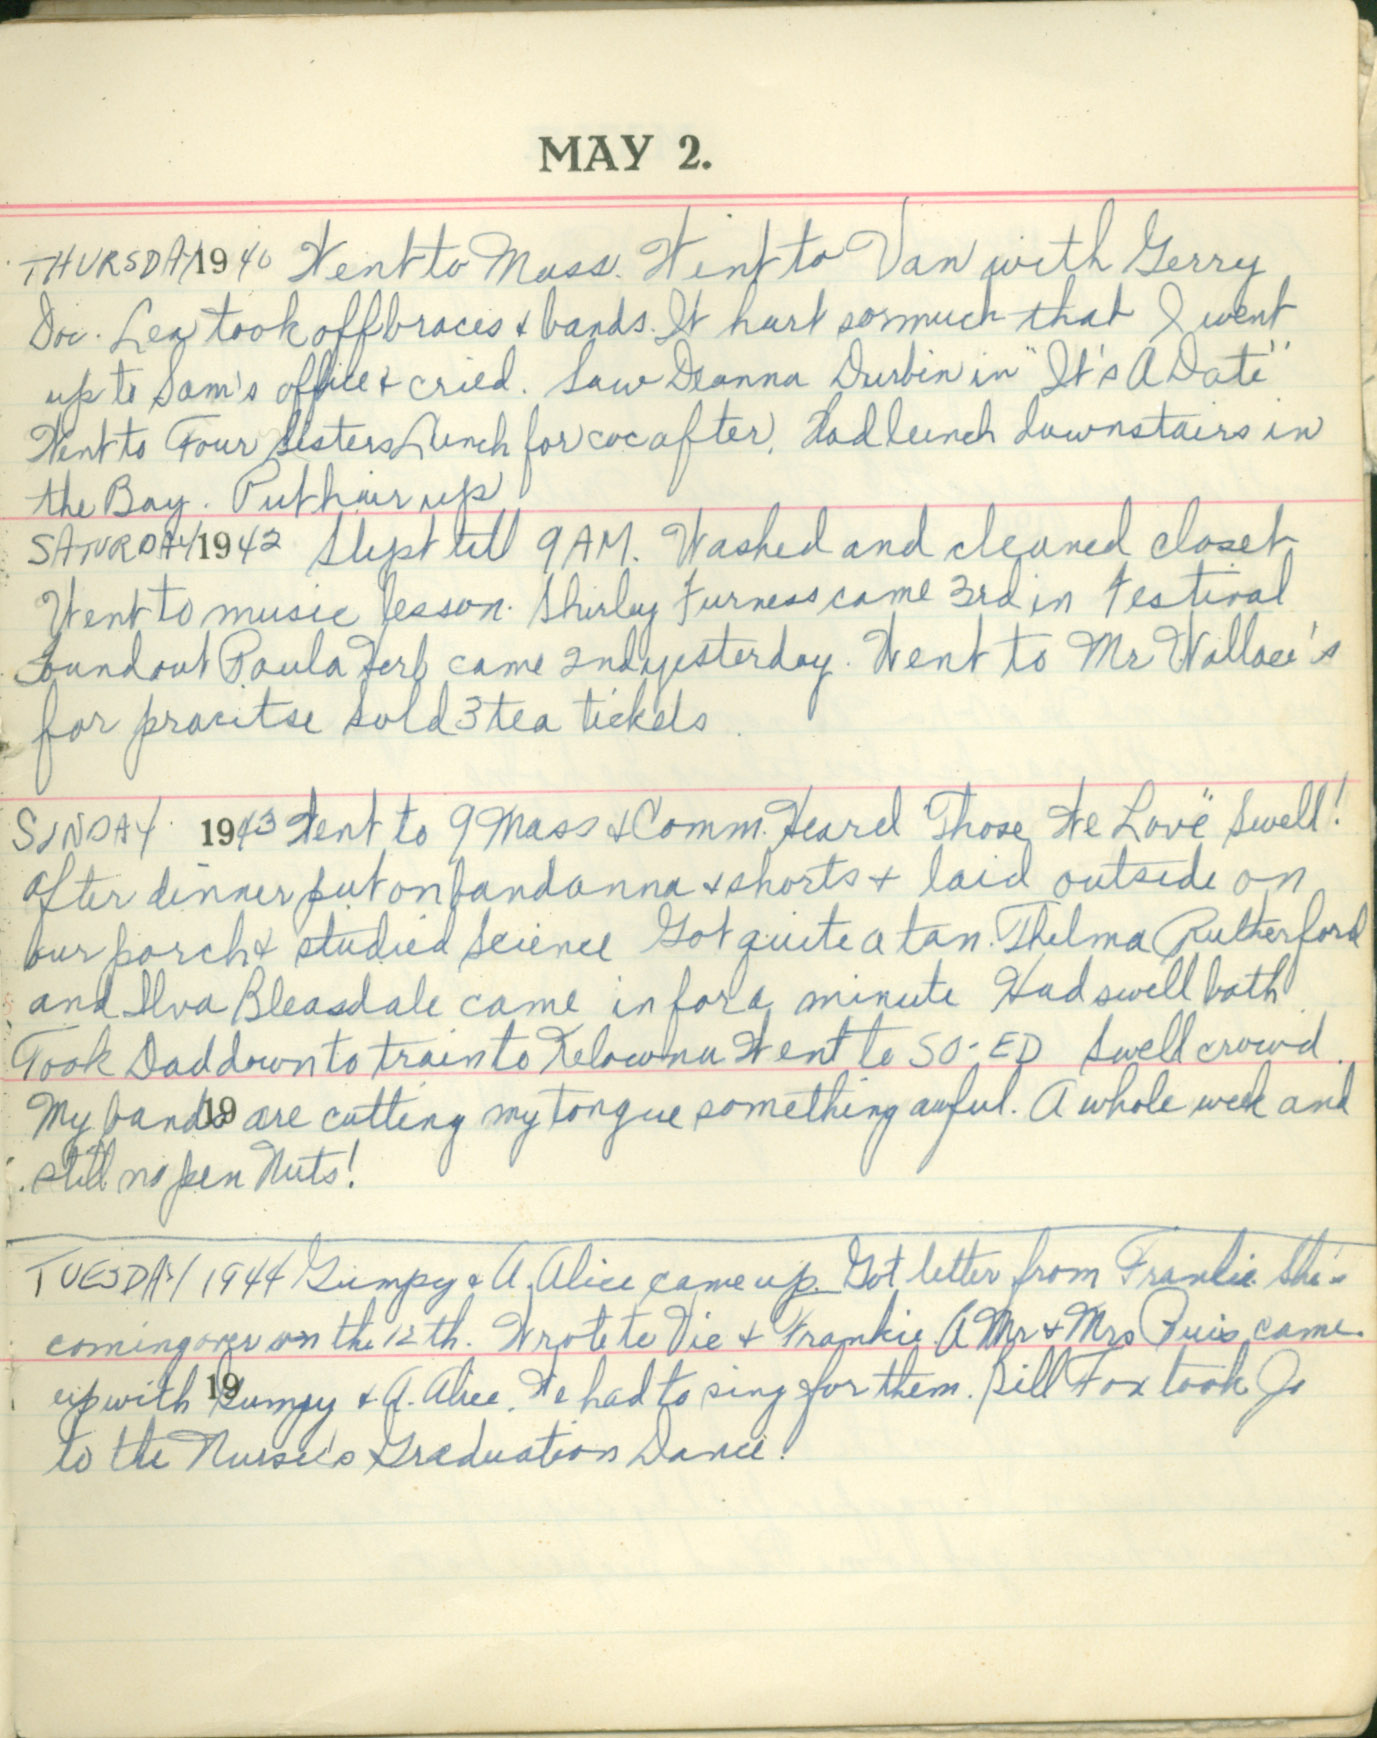 MAY 2.
THURSDAY 1940 Went to Mass. Went to Van with Gerry
Doc. Lea took off braces & bands. It hurt so much that I went
up to Sam's office & cried. Saw Deanna Durbin in "It's A Date"
Went to Four Sisters Lunch for coc after. Had lunch downstairs in
the Bay. Put hair up
SATURDAY 1942 Slept till 9 AM. Washed and cleaned closet
Went to music lesson. Shirley Furness came 3rd in Festival
Found out Paula Herb came 2nd yesterday. Went to Mr Wallace's
for pracitse Sold 3 tea tickets
SUNDAY 1943 Went to 9 Mass & Comm. Heard "Those We Love" Swell!
After dinner put on bandanna & shorts & laid outside on
our porch & studied Science Got quite a tan. Thelma Rutherford
and Ilva Bleasdale came in for a minute Had swell bath
Took Dad down to train to Kelowna Went to SO-ED Swell crowd.
My bands 19 are cutting my tongue something awful. A whole week and
still no pen Nuts!
TUESDAY 1944 Gumpy & A. Alice came up. Got letter from Frankie She's
coming over on the 12th. Wrote to Vic & Frankie. A Mr & Mrs Puis came
up with 19 Gumpy & A. Alice. We had to sing for them. Bill Fox took Jo
to the Nurse's Graduation Dance!